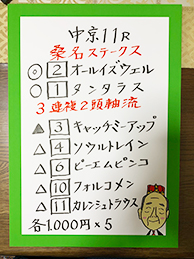 中京11R
桑名ステークス
◎ 2 オールイズウェル
○ 1 タンタラス
3連複2頭軸流
▲ 3 キャッチミーアップ
△ 4 ソウルトレイン
△ 6 ピーエムピンコ
△ 10 フォルコメン
△ 11 カレンシュトラウス
各1.000円×5